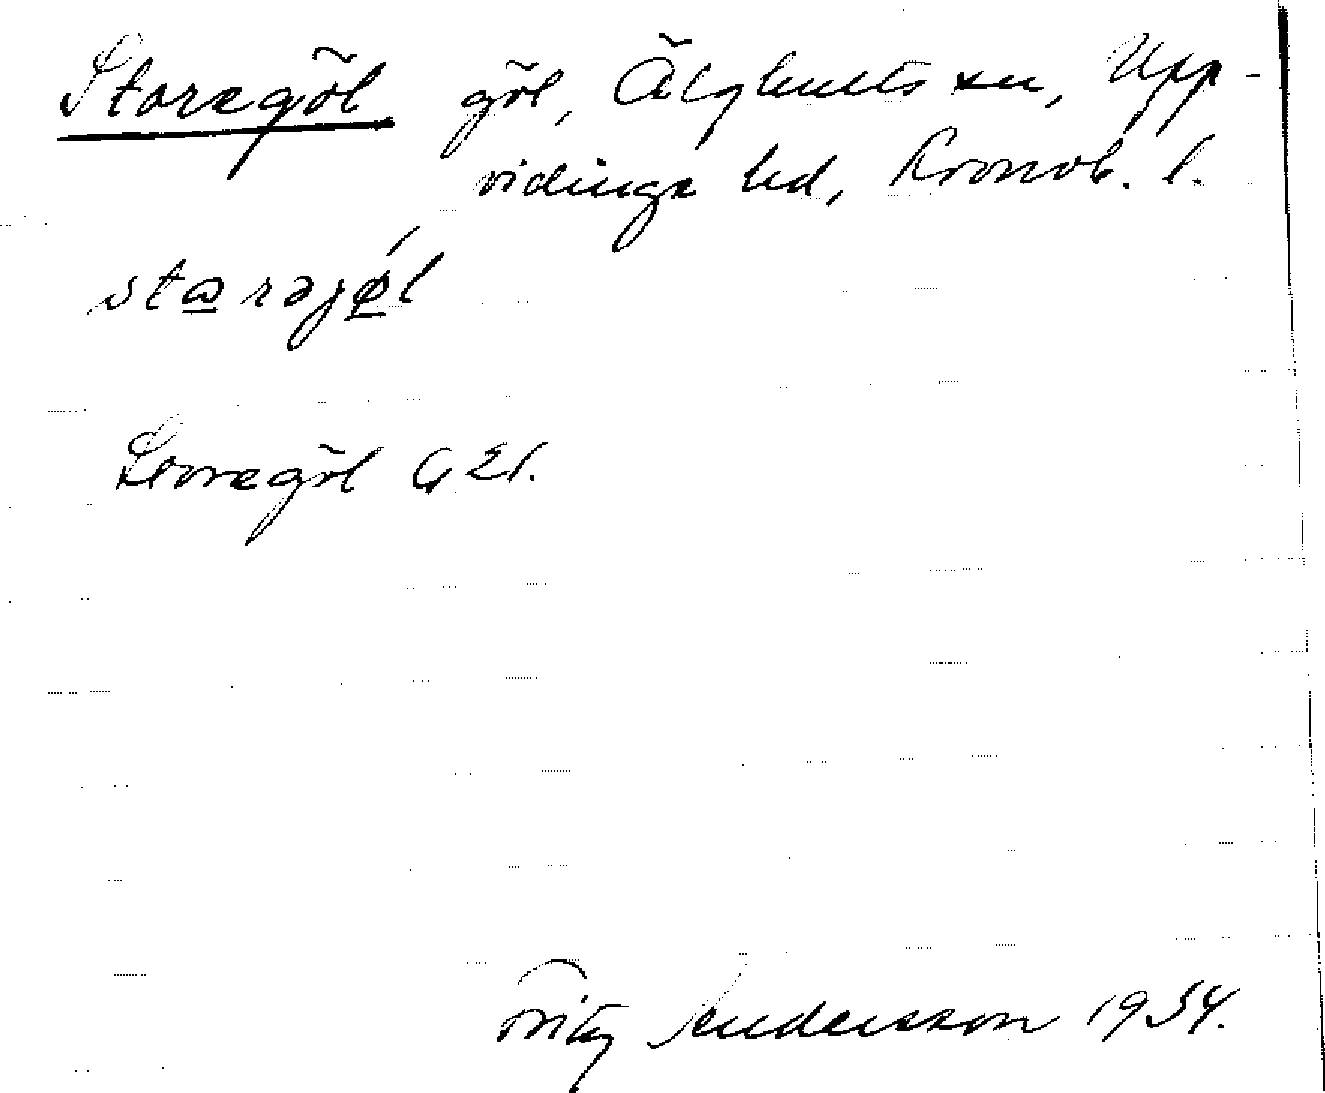 Storegöl göl, Älghults sn, Upp-
vidinge hd, Kronob. l.
storəjøĺl
Storegöl G 21.
Fritz Andersson 1934.